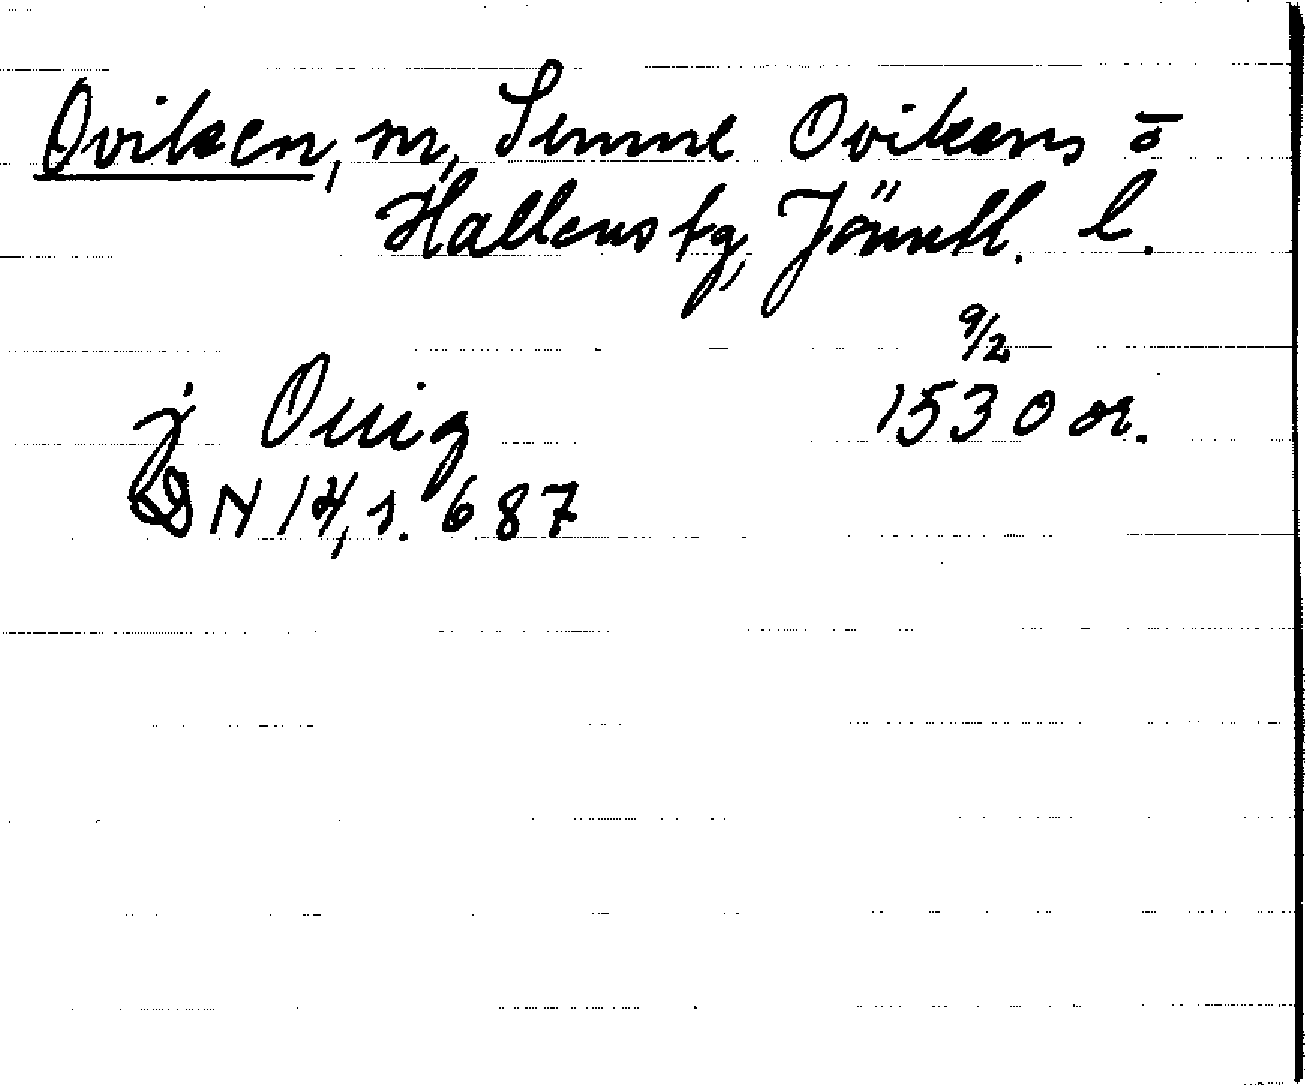 Oviken, nr, Sunne Ovikens o
Hallens tg, Jämtl. l.
9/2
j Ouig 1530 or.
DN 14, s. 687